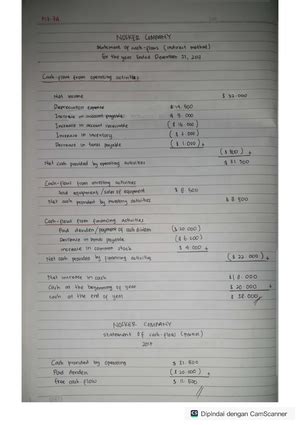 P13-7A
NOSKER COMPANY
Statement of cash-flows (indirect method)
For the year Ended December 31, 2017
Cash-flows from operating activities
Net income $ 32.000
Depreciation expense $ 14.500
Increase in account payable $ 9.000
Increase in account receivable ($ 14.000)
Increase in inventory ($ 7.000)
Decrease in taxes payable ($ 1.000) +
($ 500) +
Net cash provided by operating activities $ 31.500
Cash-flows from investing activities
Sold equipment / sales of equipment $ 8.500
Net cash provided by investing activities $ 8.500
Cash-flows from financing activities
Paid deviden / payment of cash dividen ($ 20.000)
Decrease in bonds payable ($ 6.000)
increase in common stock $ 4.000 +
Net cash provided by financing activities ($ 22.000) +
Net increase in cash $18.000
Cash at the beginning of year $ 20.000 +
Cash at the end of year $ 38.000
NOSKER COMPANY
Statement of cash-flow (partial)
2017
Cash provided by operating $ 31.500
Paid deviden ($ 20.000) +
free cash flow $ 11.500
Dipindai dengan CamScanner